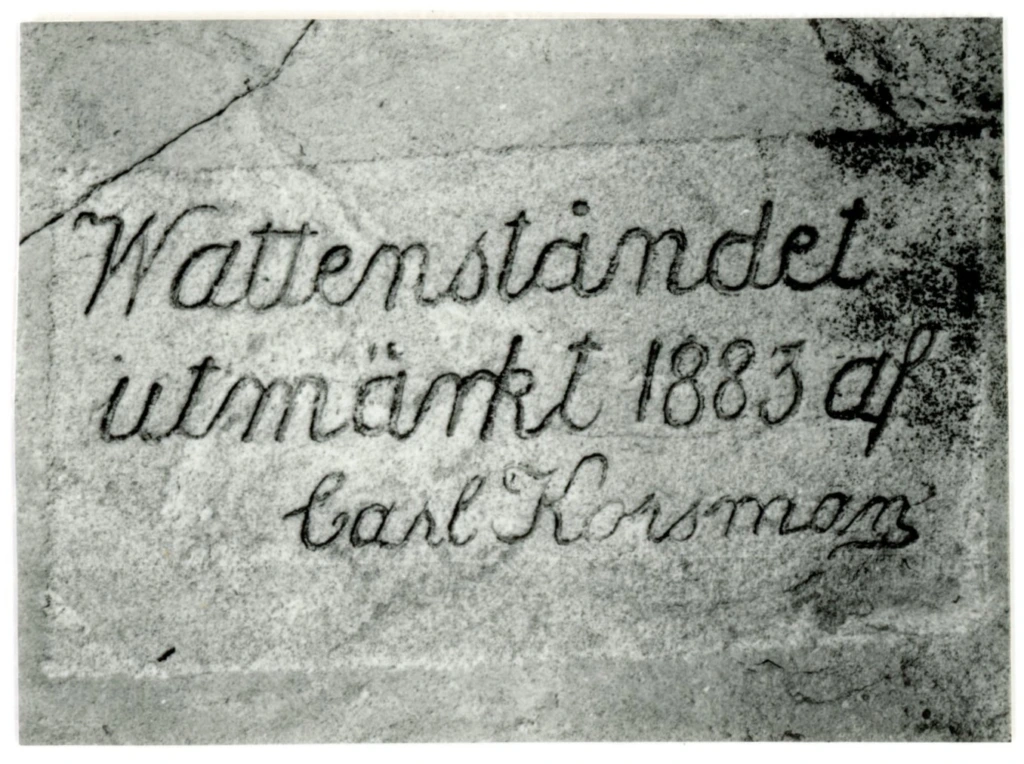 Wattenståndet
utmärkt 1883 af
Carl Korsman